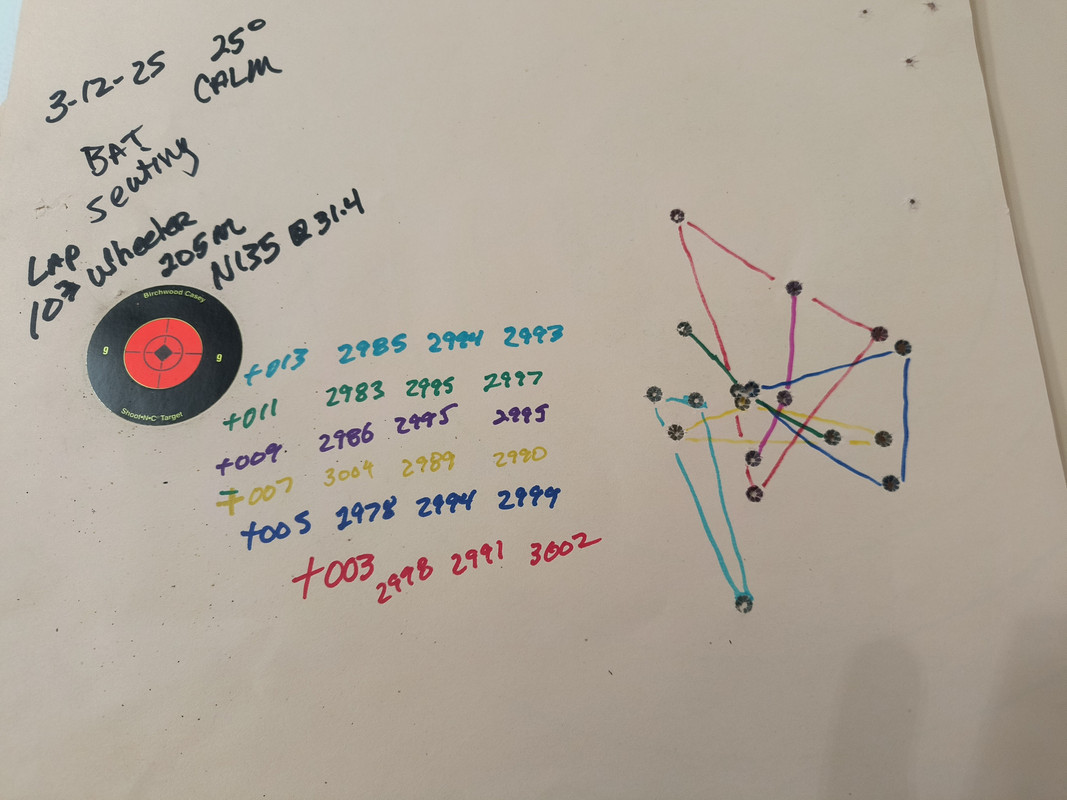 3-12-25 25°
CALM
BAT
seating
LAP
103 Wheeler
205M
N135 @ 31.4
Birchwood Casey
9 9
Shoot•N•C Target
+013 2985 2994 2993
+011 2983 2995 2997
+009 2986 2995 2995
+007 3004 2989 2990
+005 2978 2994 2999
+003 2998 2991 3002